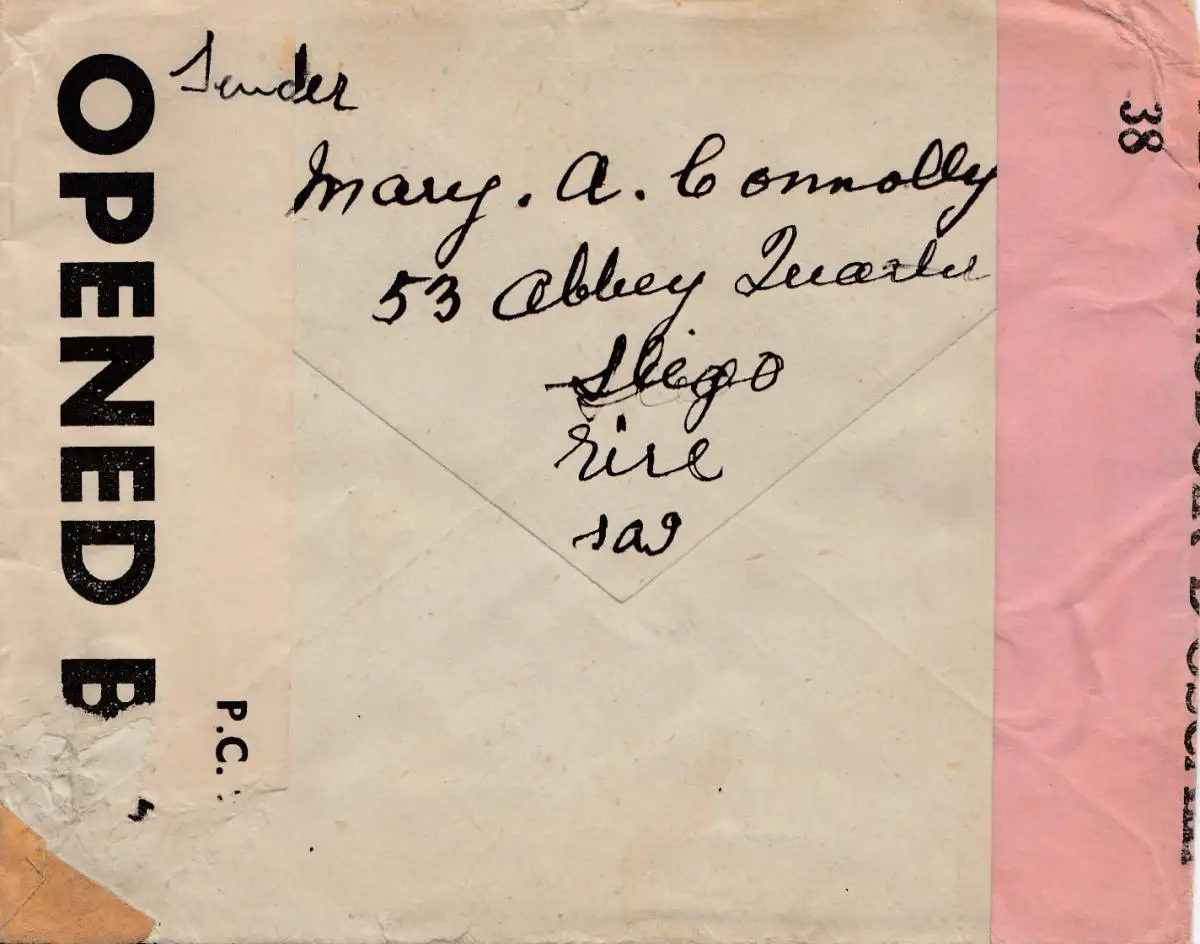 OPENED B
P.C.
Sender
Mary. A. Connolly
53 Abbey Quarter
Sligo
Eire
sag
38